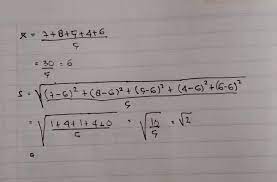 x̄ = 7+8+5+4+6 / 5
= 30 / 5 = 6
s = √((7-6)² + (8-6)² + (5-6)² + (4-6)² + (6-6)² / 5)
= √(1+4+1+4+0 / 5) = √(10 / 5) = √2